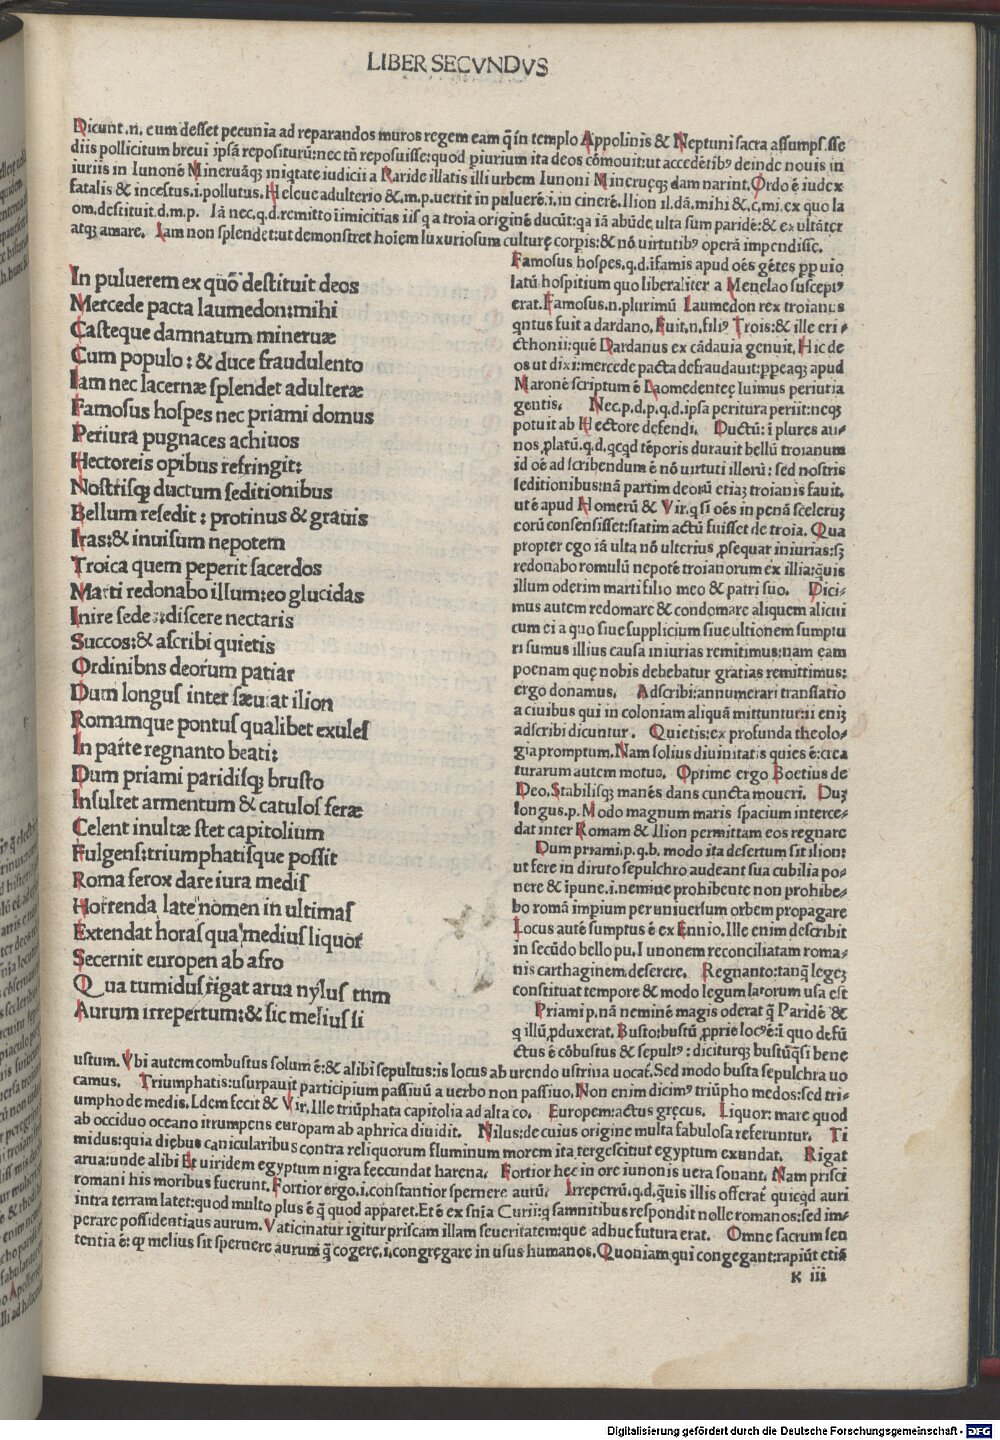 LIBER SECVNDVS
Dicunt .n. cum desset pecunia ad reparandos muros regem eam q̃ in templo Appolinis & Neptuni sacra assumps.sse
diis pollicitum breui ipsã repositurũ: nec tñ reposuisse: quod piurium ita deos cõmouit: ut accedẽtibꝰ deinde nouis in
iuriis in Iunonẽ Mineruãqꝫ iniqtate iudicii a Raride illatis illi urbem Iunoni Mineruęqꝫ dam narint. Ordo ẽ iudex
fatalis & incestus .i. pollutus. Heleue adulterio & .m.p. uertit in puluerẽ .i. in cinerẽ. Ilion il. dã. mihi & .c. mi. ex quo la
om. destituit .d.m.p. Iã nec .q.d. remitto iimicitias iis q a troia originẽ ducũt: qa iã abũde ulta sum paridẽ: & exultãter
atqꝫ amare. Iam non splendet: ut demonstret hoĩem luxuriosum culturę corpis: & nõ uirtutibꝰ operã impendisse.
In puluerem ex quo destituit deos
Mercede pacta laumedon: mihi
Casteque damnatum mineruæ
Cum populo: & duce fraudulento
Iam nec lacernæ splendet adulteræ
Famosus hospes nec priami domus
Periura pugnaces achiuos
Hectoreis opibus refringit:
Nostrisqꝫ ductum seditionibus
Bellum resedit: protinus & grauis
Iras: & inuisum nepotem
Troica quem peperit sacerdos
Marti redonabo illum: eo glucidas
Inire sede :: discere nectaris
Succos: & ascribi quietis
Ordinibns deorum patiar
Dum longus inter sæuiat ilion
Romamque pontus qualibet exules
In parte regnanto beati:
Dum priami paridisqꝫ brusto
Insultet armentum & catulos feræ
Celent inultæ stet capitolium
Fulgens: triumphatisque possit
Roma ferox dare iura medis
Horrenda late nomen in ultimas
Extendat horas qua medius liquor
Secernit europen ab afro
Qua tumidus rigat arua nylus tnm
Aurum irrepertum: & sic melius si
Famosus hospes .q.d. ĩfamis apud oẽs gẽtes pp uio
latũ hospitium quo liberaliter a Menelao susceptꝰ
erat. Famosus .n. plurimũ Laumedon rex troianus
qntus fuit a dardano. Fuit .n. filiꝰ Trois: & ille eri-
cthonii: quẽ Dardanus ex cãdauia genuit. Hic de
os ut dixi: mercede pacta defraudauit: ppeaqꝫ apud
Maronẽ scriptum ẽ Laomedenteę luimus periuria
gentis. Nec .p.d.p.q.d. ipsa peritura periit: neqꝫ
potuit ab Hectore defendi. Ductũ: i plures an-
nos platũ .q.d. qcqd tẽporis durauit bellũ troianum
id oẽ adscribendum ẽ nõ uirtuti illorũ: sed nostris
seditionibus: nã partim deorũ etiaꝫ troianis fauit.
ut ẽ apud Homerũ & Vir. q si oẽs in penã sceleruꝫ
eorũ consensisset: statim actũ fuisset de troia. Qua
propter ego iã ulta nõ ulterius psequar iniurias: sꝫ
redonabo romulũ nepotẽ troianorum ex illia: quis
illum oderim marti filio meo & patri suo. Dici-
mus autem redomare & condomare aliquem alicui
cum ei a quo siue supplicium siue ultionem sumptu
ri sumus illius causa iniurias remitimus: nam eam
poenam quę nobis debebatur gratias remittimus:
ergo donamus. Adscribi: annumerari translatio
a ciuibus qui in coloniam aliquã mittuntur: ii eniꝫ
adscribi dicuntur. Quietis: ex profunda theolo-
gia promptum. Nam solius diuinitatis quies ẽ: crea
turarum autem motus. Optime ergo Boctius de
Deo. Stabilisqꝫ manẽs dans cuncta moueri. Duꝫ
longus .p. Modo magnum maris spacium interce-
dat inter Romam & Ilion permittam eos regnare
Dum priami .p.q.b. modo ita desertum sit ilion:
ut fere in diruto sepulchro audeant sua cubilia po-
nere & ipune .i. nemine prohibente non prohibe-
bo romã impium per uniuersum orbem propagare
Locus autẽ sumptus ẽ ex Ennio. Ille enim describit
in secũdo bello pu. Iunonem reconciliatam roma-
nis carthaginem deserere. Regnanto: tanq̃ legeꝫ
constituat tempore & modo legum latorum usa est
Priami p. nã neminẽ magis oderat q̃ Paridẽ &
q illũ pduxerat. Busto: bustũ pprie locꝰ ẽ: i quo defũ
ctus ẽ cõbustus & sepultꝰ: diciturqꝫ bustũ q̃si bene
ustum. Vbi autem combustus solum ẽ: & alibi sepultus: is locus ab urendo ustrina uocat. Sed modo busta sepulchra uo
camus. Triumphatis: usurpauit participium passiuũ a uerbo non passiuo. Non enim dicimꝰ triũpho medos: sed tri-
umpho de medis. Idem fecit & Vir. Ille triũphata capitolia ad alta co. Europem: actus gręcus. Liquor: mare quod
ab occiduo oceano irrumpens europam ab aphrica diuidit. Nilus: de cuius origine multa fabulosa referuntur. Ti
midus: quia diebus canicularibus contra reliquorum fluminum morem ita tergescit ut egyptum exundat. Rigat
arua: unde alibi Et uiridem egyptum nigra feecundat harena. Fortior hec in ore iunonis uera sonant. Nam prisci
romani his moribus fuerunt. Fortior ergo .i. constantior spernere aurũ. Irreperrũ .q.d. q̃uis illis offerat quicqd auri
intra terram latet: quod multo plus ẽ q̃ quod apparet. Et ẽ ex snĩa Curii: q samnitibus respondit nolle romanos: sed im-
perare possidentiaus aurum. Vaticinatur igitur priscam illam seueritatem: que adhuc futura erat. Omne sacrum sen
tentia ẽ: ꝙ melius sit spernere aurum q̃ cogere .i. congręgare in usus humanos. Quoniam qui congegant: rapiũt etiã
K iii
Digitalisierung gefördert durch die Deutsche Forschungsgemeinschaft - DFG